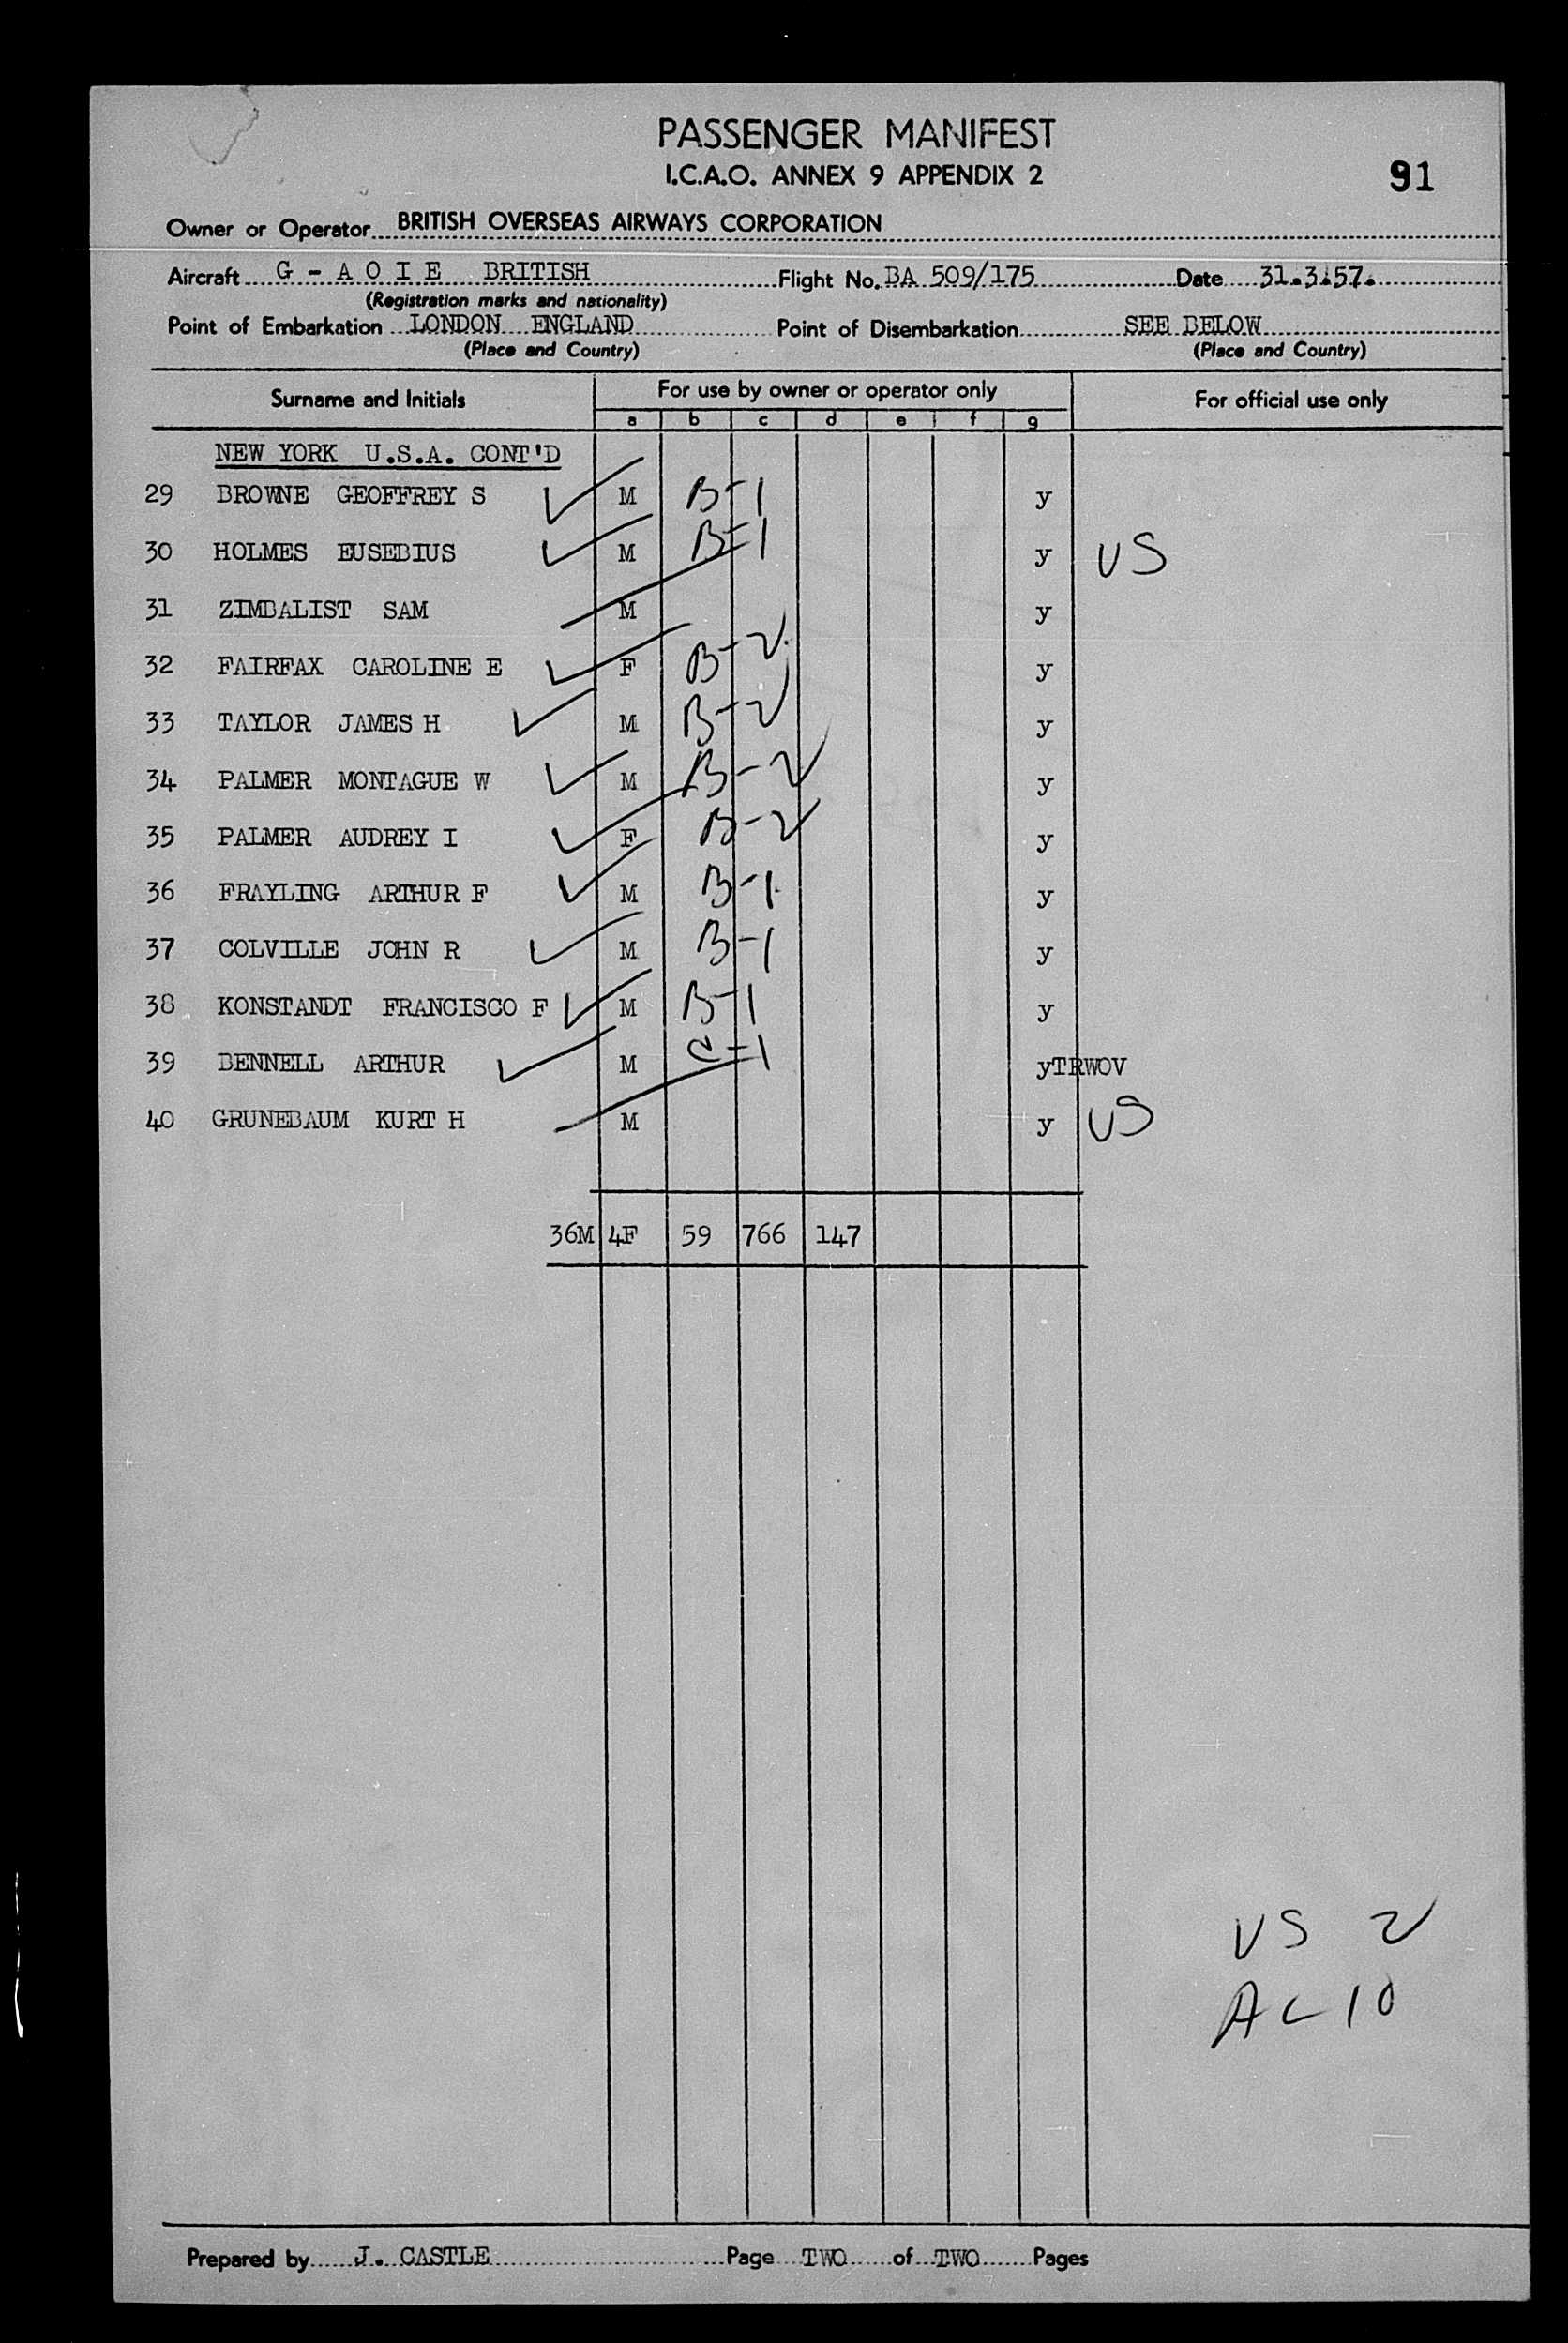 PASSENGER MANIFEST
I.C.A.O. ANNEX 9 APPENDIX 2
91
Owner or Operator BRITISH OVERSEAS AIRWAYS CORPORATION
Aircraft G - A O I E BRITISH Flight No. BA 509/175 Date 31.3.57.
(Registration marks and nationality)
Point of Embarkation LONDON ENGLAND Point of Disembarkation SEE BELOW
(Place and Country) (Place and Country)
Surname and Initials For use by owner or operator only For official use only
a b c d e f g
NEW YORK U.S.A. CONT'D
29 BROWNE GEOFFREY S M B-1 y
30 HOLMES EUSEBIUS M B-1 y US
31 ZIMBALIST SAM M y
32 FAIRFAX CAROLINE E F B-2 y
33 TAYLOR JAMES H M B-2 y
34 PALMER MONTAGUE W M B-2 y
35 PALMER AUDREY I F B-2 y
36 FRAYLING ARTHUR F M B-1 y
37 COLVILLE JOHN R M B-1 y
38 KONSTANDT FRANCISCO F M B-1 y
39 BENNELL ARTHUR M C-1 yTRWOV
40 GRUNEBAUM KURT H M y US
36M 4F 59 766 147
US 2
AL 10
Prepared by J. CASTLE Page TWO of TWO Pages